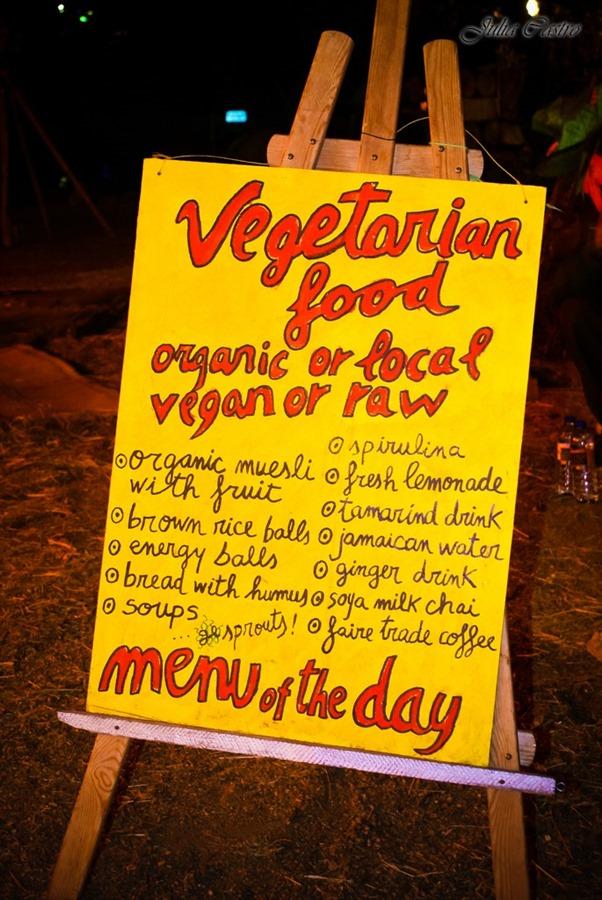 Julia Castro
Vegetarian
food
organic or local
vegan or raw
organic muesli
with fruit
brown rice balls
energy balls
bread with humus
soups
... sprouts!
spirulina
fresh lemonade
tamarind drink
jamaican water
ginger drink
soya milk chai
faire trade coffee
menu of the day